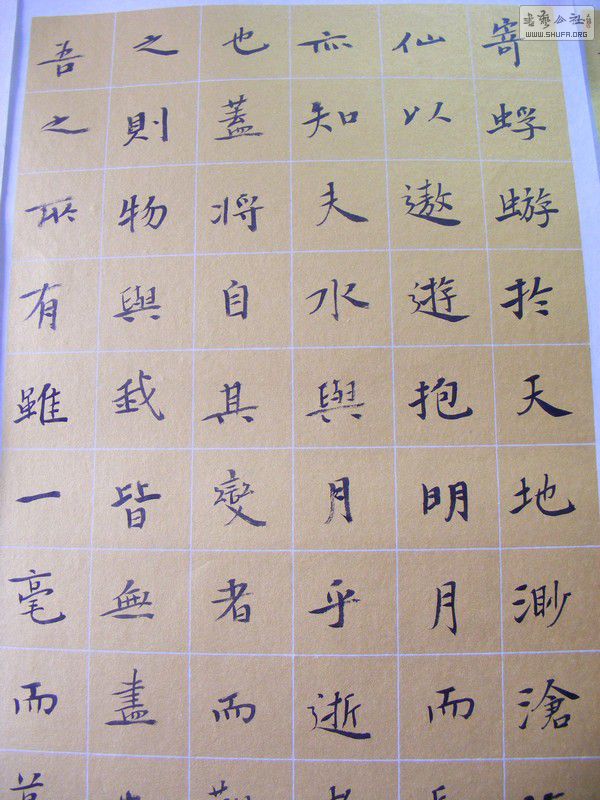 書藝公社
WWW.SHUFA.ORG
寄蜉蝣扵天地渺滄
仙以遨遊抱明月而
亦知夫水與月乎逝
也蓋將自其變者而
之則物與我皆無盡
吾之所有雖一毫而